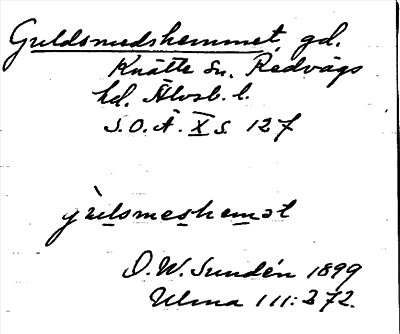 Guldsmedshemmet, gd.
Knätte sn. Redvägs
hd. Älvsb. l.
S.O.Ä. X s 127
gùlsmeshemət
D.W. Sundén 1899
Ulma 111:272.